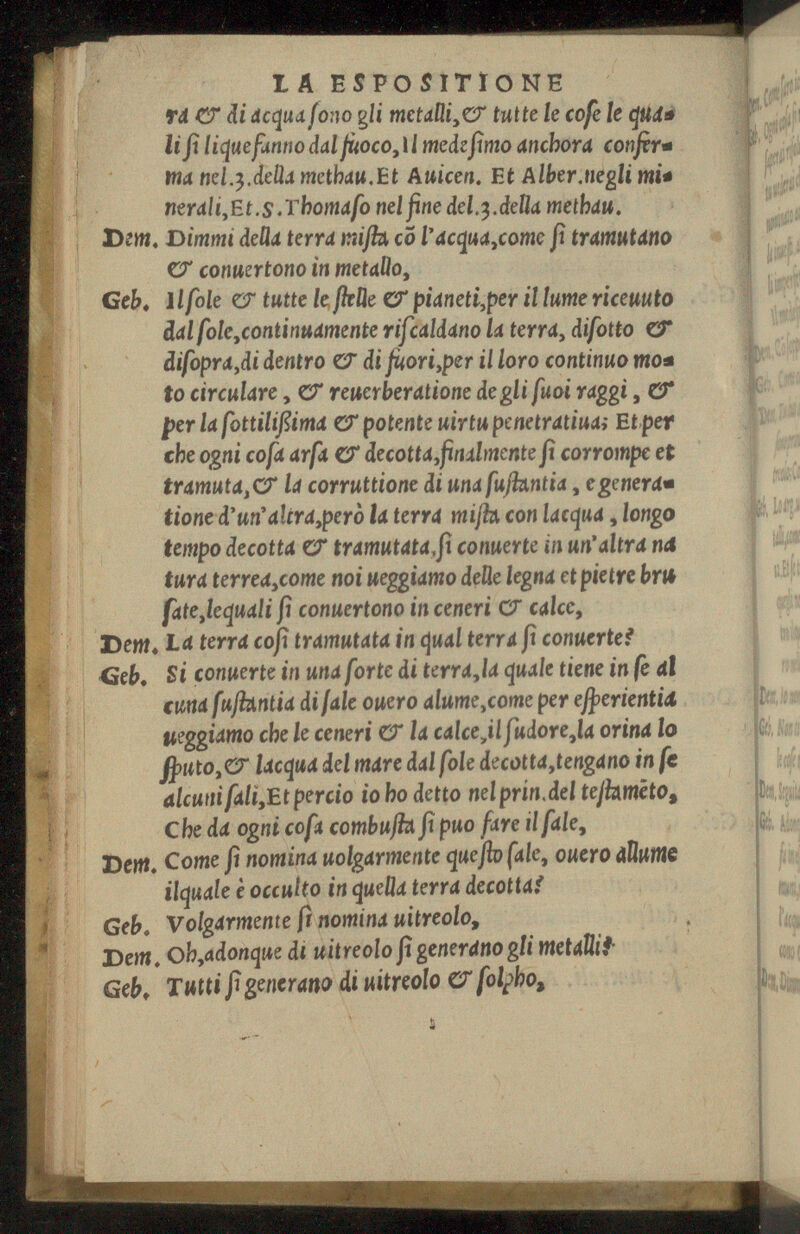 LA ESPOSITIONE
ra & di acqua ſono gli metalli, & tutte le coſe le qua=
li ſi liquefanno dal fuoco, Il medeſimo anchora confer=
ma nel.3.della methau.Et Auicen. Et Alber.negli mi=
nerali,Et.S.Thomaſo nel fine del.3.della methau.
Dem. Dimmi della terra miſta cõ l'acqua,come ſi tramutano
& conuertono in metallo,
Geb. Il ſole & tutte le ſtelle & pianeti,per il lume riceuuto
dal ſole,continuamente riſcaldano la terra, diſotto &
diſopra,di dentro & di fuori,per il loro continuo mo=
to circulare, & reuerberatione de gli ſuoi raggi, &
per la ſottilißima & potente uirtu penetratiua; Et per
che ogni coſa arſa & decotta,finalmente ſi corrompe et
tramuta,& la corruttione di una ſuſtantia, e genera=
tione d'un'altra,però la terra miſta con lacqua, longo
tempo decotta & tramutata,ſi conuerte in un'altra na
tura terrea,come noi ueggiamo delle legna et pietre bru
ſate,lequali ſi conuertono in ceneri & calce,
Dem. La terra coſi tramutata in qual terra ſi conuerte?
Geb. Si conuerte in una ſorte di terra,la quale tiene in ſe al
cuna ſuſtantia di ſale ouero alume,come per eſperientia
ueggiamo che le ceneri & la calce,il ſudore,la orina lo
ſputo,& lacqua del mare dal ſole decotta,tengano in ſe
alcuni ſali,Et percio io ho detto nel prin.del teſtamẽto,
Che da ogni coſa combuſta ſi puo fare il ſale,
Dem. Come ſi nomina uolgarmente queſto ſale, ouero allume
ilquale è occulto in quella terra decotta?
Geb. Volgarmente ſi nomina uitreolo,
Dem. Oh,adonque di uitreolo ſi generano gli metalli?
Geb. Tutti ſi generano di uitreolo & ſolpho,